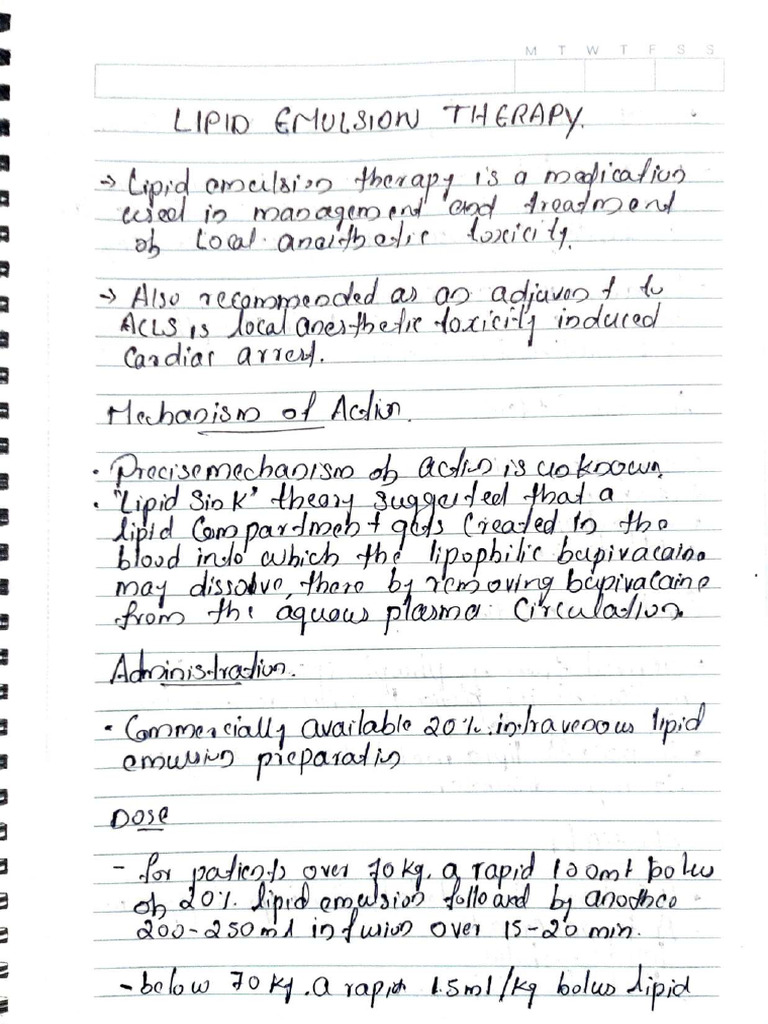 M T W T F S S
LIPID EMULSION THERAPY.
→ Lipid emulsion therapy is a medication
used in management and treatment
of Local anaithetic toxicity.
→ Also recommended as an adjuvant to
ACLS is local anesthetic toxicity induced
Cardiac arrest.
Mechanism of Action.
• Precise mechanism of action is unknown.
• "Lipid Sink" theory suggested that a
lipid Compartment gets Created in the
blood into which the lipophilic bupivacaine
may dissolve, there by removing bupivacaine
from the aquous plasma Circulation.
Administration.
• Commercially available 20% intravenous lipid
emulsion preparation
Dose
- for patients over 70 kg. a rapid 100ml bolus
of 20% lipid emulsion followed by another
200-250ml infusion over 15-20 min.
- below 70 kg. a rapid 1.5ml/kg bolus lipid